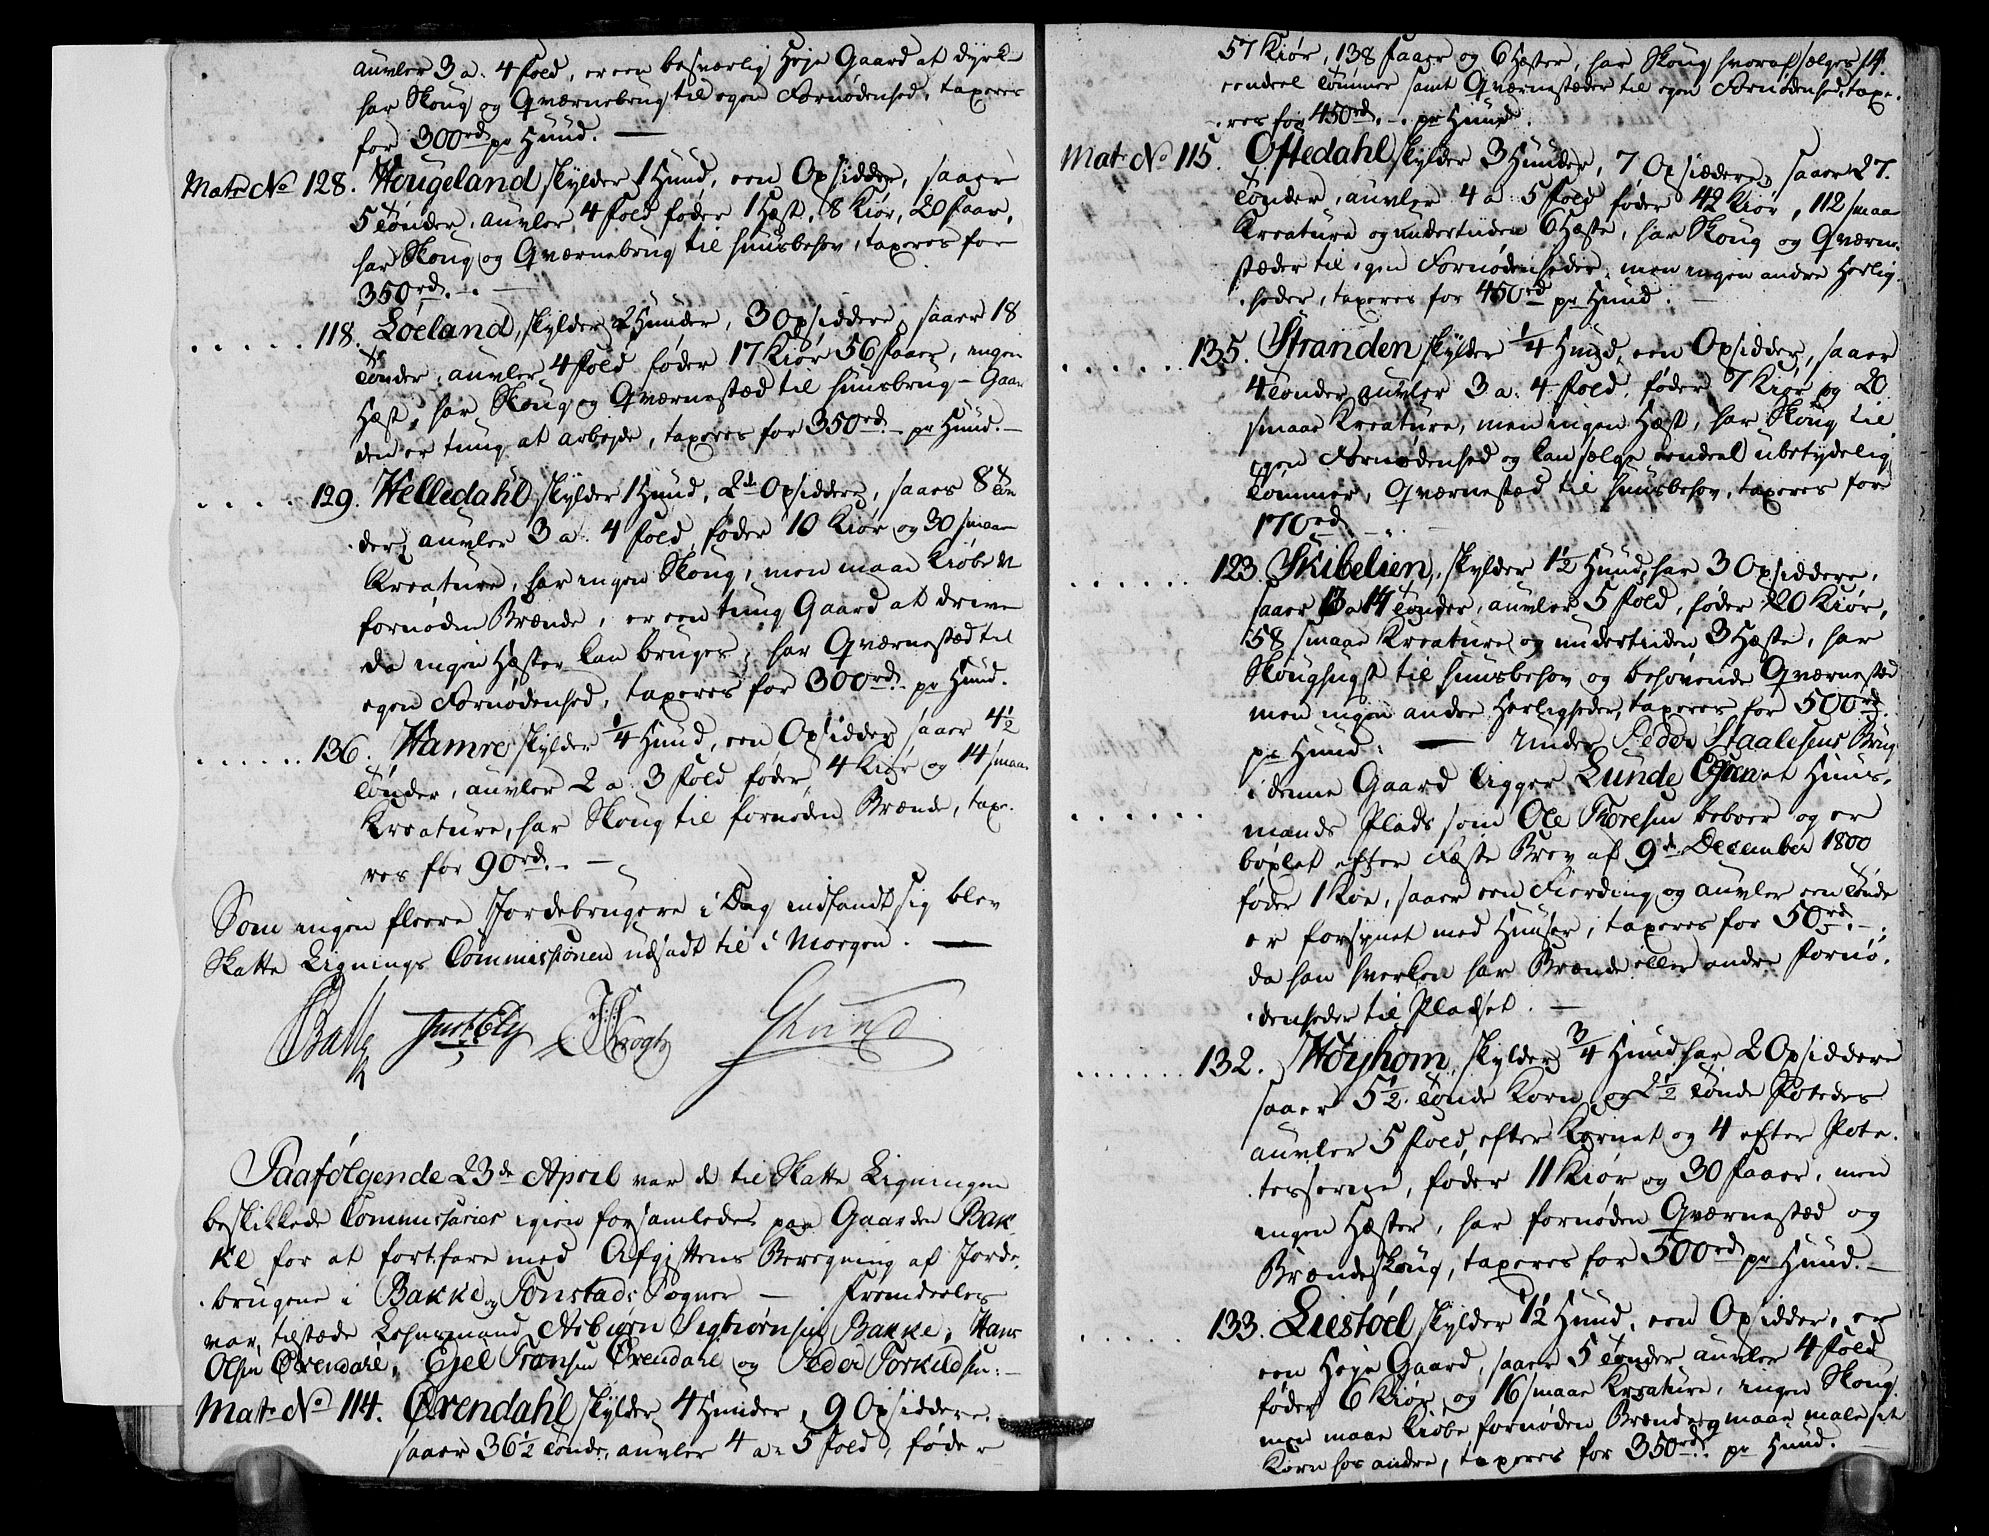 auvler 3 a. 4 Fold, er een besværlig Heje Gaard at dyrke
har Skoug og Qværnebrug til egen Fornødenhed, taxeres
for 300 rd pr Hund. —
Matr No 128. Hougeland skylder 1 Hund, een Opsidder, saaer
5 Tønder, auvler 4 Fold føder 1 Hæst, 8 Kiør, 20 Faar,
har Skoug og Qværnebrug til Huusbehov, taxeres for
350 rd. . —
. . . . . 118. Loeland, skylder 2 Hunder, 3 Opsiddere, saaer 18
Tønder, auvler 4 Fold føder 17 Kiør 56 Faar, ingen
Hæst, har Skoug og Qværnestæd til Huusbrug – Gaar
den er tung at arbejde, taxeres for 350 rd. – pr Hund. –
. . . . . 129. Helledahl skylder 1 Hund, 2de Opsiddere, saaer 8 Tøn
der, auvler 3 a. 4 Fold, føder 10 Kiør og 30 smaae
Kreature, har ingen Skoug, men maae Kiøbe
fornøden Brænde, er een tung Gaard at drive
da ingen Hæster kan bruges, har Qværnestæd til
egen Fornødenhed, taxeres for 300 rd. – pr Hund.
. . . . . . 136. Hamre skylder 1/4 Hund, een Opsidder, saaer 4 1/2
Tønder, auvler 2 a. 3 Fold føder, 4 Kiør og 14 smaae
Kreature, har Skoug til fornøden Brænde, taxe-
res for 90 rd. – —
Som ingen fleere Jordebrugere i Dag indfandt sig blev
Skatte Lignings Commissionen udsadt til i Morgen. —
Just Ely
Paafølgende 23de April var de til Skatte Ligningen
beskikkede Commissarier igien forsamlede paa Gaarden Bak
ke for at fortfare med Afgiftens Beregning af Jorde-
brugene i Bakke og Tonstads Sogner — Fremdeeles
var tilstæde Lehnsmand Asbiørn Sigbiørnsen Bakke, Hans
Olsen Ørendale, Ejel Tronsen Ørendale og Peder Torkildsen: –
Matr No 114. Ørendahl skylder 4 Hunder, 9 Opsiddere
saaer 36 1/2 Tønde, auvler 4 a. 5 Fold, føder
57 Kiør, 138 Faaer og 6 Hæster, har Skoug hvoraf sælges 14.
eendeel Tømmer samt Qværnestæder til egen Fornødenhed, taxe-
res for 450 rd. – . pr Hund.
Matr No 115. Oftedahl skylder 3 Hunder, 7 Opsiddere, saaer 27.
Tønder, auvler 4 a. 5 Fold føder 42 Kiør, 112 smaa
Kreature og undertiiden 6 Hæste, har Skoug og Qværne-
stæder til egen Fornødenheder, men ingen andre Herlig-
heder, taxeres for 450 rd pr Hund. —
. . . . . . 135. Stranden skylder 1/4 Hund, een Opsidder, saaer
4 Tønder auvler 3 a. 4 Fold, føder 7 Kiør og 20
smaae Kreature, men ingen Hæst, har Skoug til
egen Fornødenhed og kan sælge eendeel ubetydelig
Tømmer, Qværnestæd til Huusbehov, taxeres for
170 rd. –
. . . . . . 123. Skibelien, skylder 1 1/2 Hund, har 3 Opsiddere,
saaer 13 a 14 Tønder, auvler 5 Fold, føder 20 Kiør,
58 smaae Kreature og undertiden 3 Hæste, har
Skoughugst til Huusbehov og behøvende Qværnestæd
men ingen andre Herligheder, taxeres for 500 rd.
pr Hund. — Under Peder Staalesens Brug
i denne Gaard ligger Lunde et Huus-
. . . . . . mands Plads som Ole Thoresen beboer og er
bøxlet efter Fæste Brev af 9de December 1800
føder 1 Koe, saaer een Fierding og auvler een Tønde
er forsynet med Huuser, taxeres for 50 rd. – .
da han hverken har Brænde eller andre Fornø-
denheder til Pladset. —
. . . . . . . 132. Høyhom, skylder 3/4 Hund har 2 Opsiddere
saaer 5 1/2 Tønde Korn og 2 1/2 Tønde Potedes
auvler 5 Fold, efter Kornet og 4 efter Pote-
teserne, føder 11 Kiør og 30 Faaer, men
ingen Hæster, har fornøden Qværnestæd og
Brændeskoug, taxeres for 500 rd pr Hund. —
. . . . . . 133. Liestøel skylder 1 1/2 Hund, een Opsidder, er
een Heje Gaard, saaer 5 Tønder auvler 4 Fold
føder 6 Kiør og 16 smaae Kreature, ingen Skoug
men maae Kiøbe fornøden Brænde og maae male sit
Korn hos andre, taxeres for 350 rd. pr Hund. —